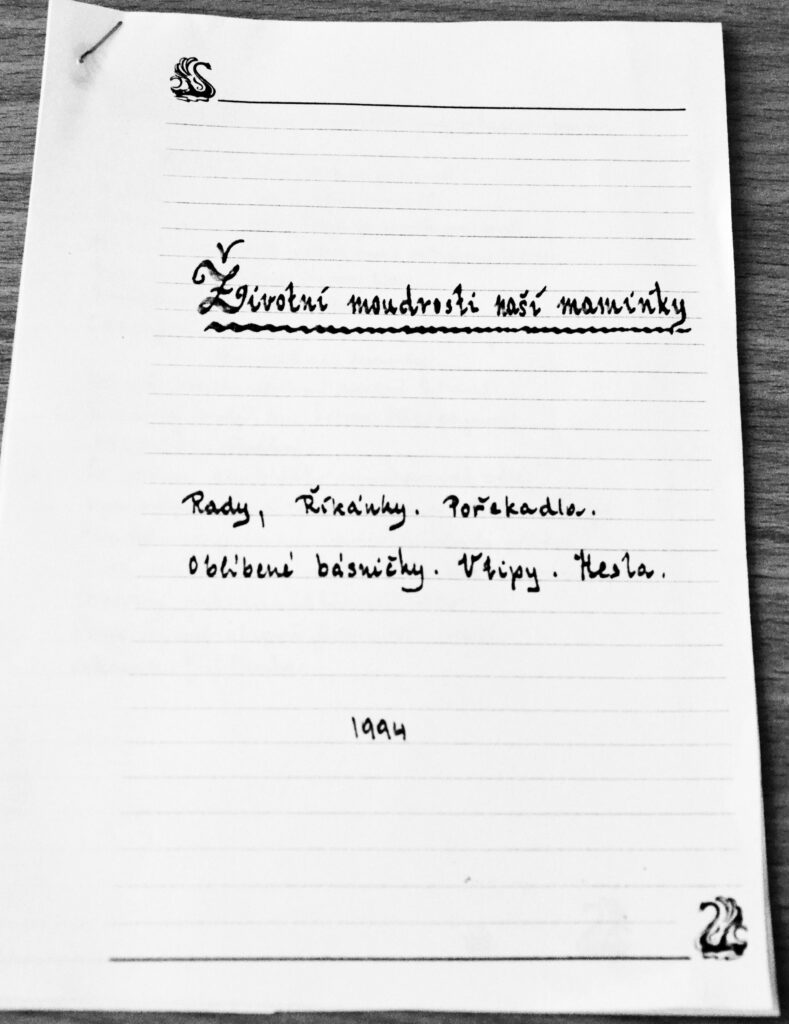 Životní moudrosti naší maminky
Rady, Říkánky. Pořekadla.
Oblíbené básničky. Vtipy. Hesla.
1994